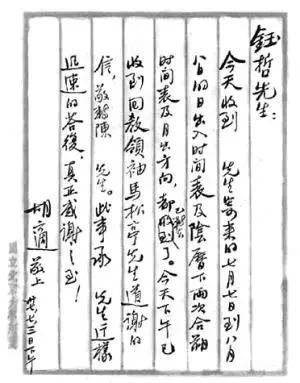 鈺哲先生：
今天收到 先生寄来的七月七日到八月
八日的日出入时间表及陰曆下两次合朔
时间表及月出方向，都收到了。今天下午已
收到回教領袖馬松亭先生道謝的
信，敬轉陳 先生。此事承 先生这樣
迅速的答復，真正感謝之至！
胡適 敬上 三日下午